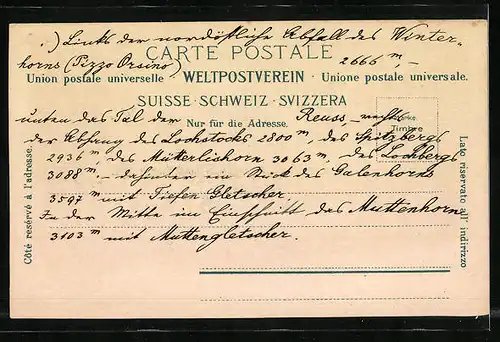 ·) Links der nordöstliche Abfall des Winter-
horns (Pizzo Orsino) 2666 m, -
CARTE POSTALE
Union postale universelle · WELTPOSTVEREIN · Unione postale universale.
SUISSE · SCHWEIZ · SVIZZERA
Nur für die Adresse.
Marke
Timbre
unten das Tal der Reuss, - rechts
der Abhang des Lochstocks 2800 m, des Spitzbergs
2936 m, des Mütterlishorn 3063 m, des Lochbergs
3088. - dahinter ein Stück des Galenhorns
3597 m mit Tiefen Gletscher.
In der Mitte im Einschnitt das Muttenhorn
3103 m mit Muttengletscher.
Côté réservé à l'adresse.
Lato riservato all' indirizzo